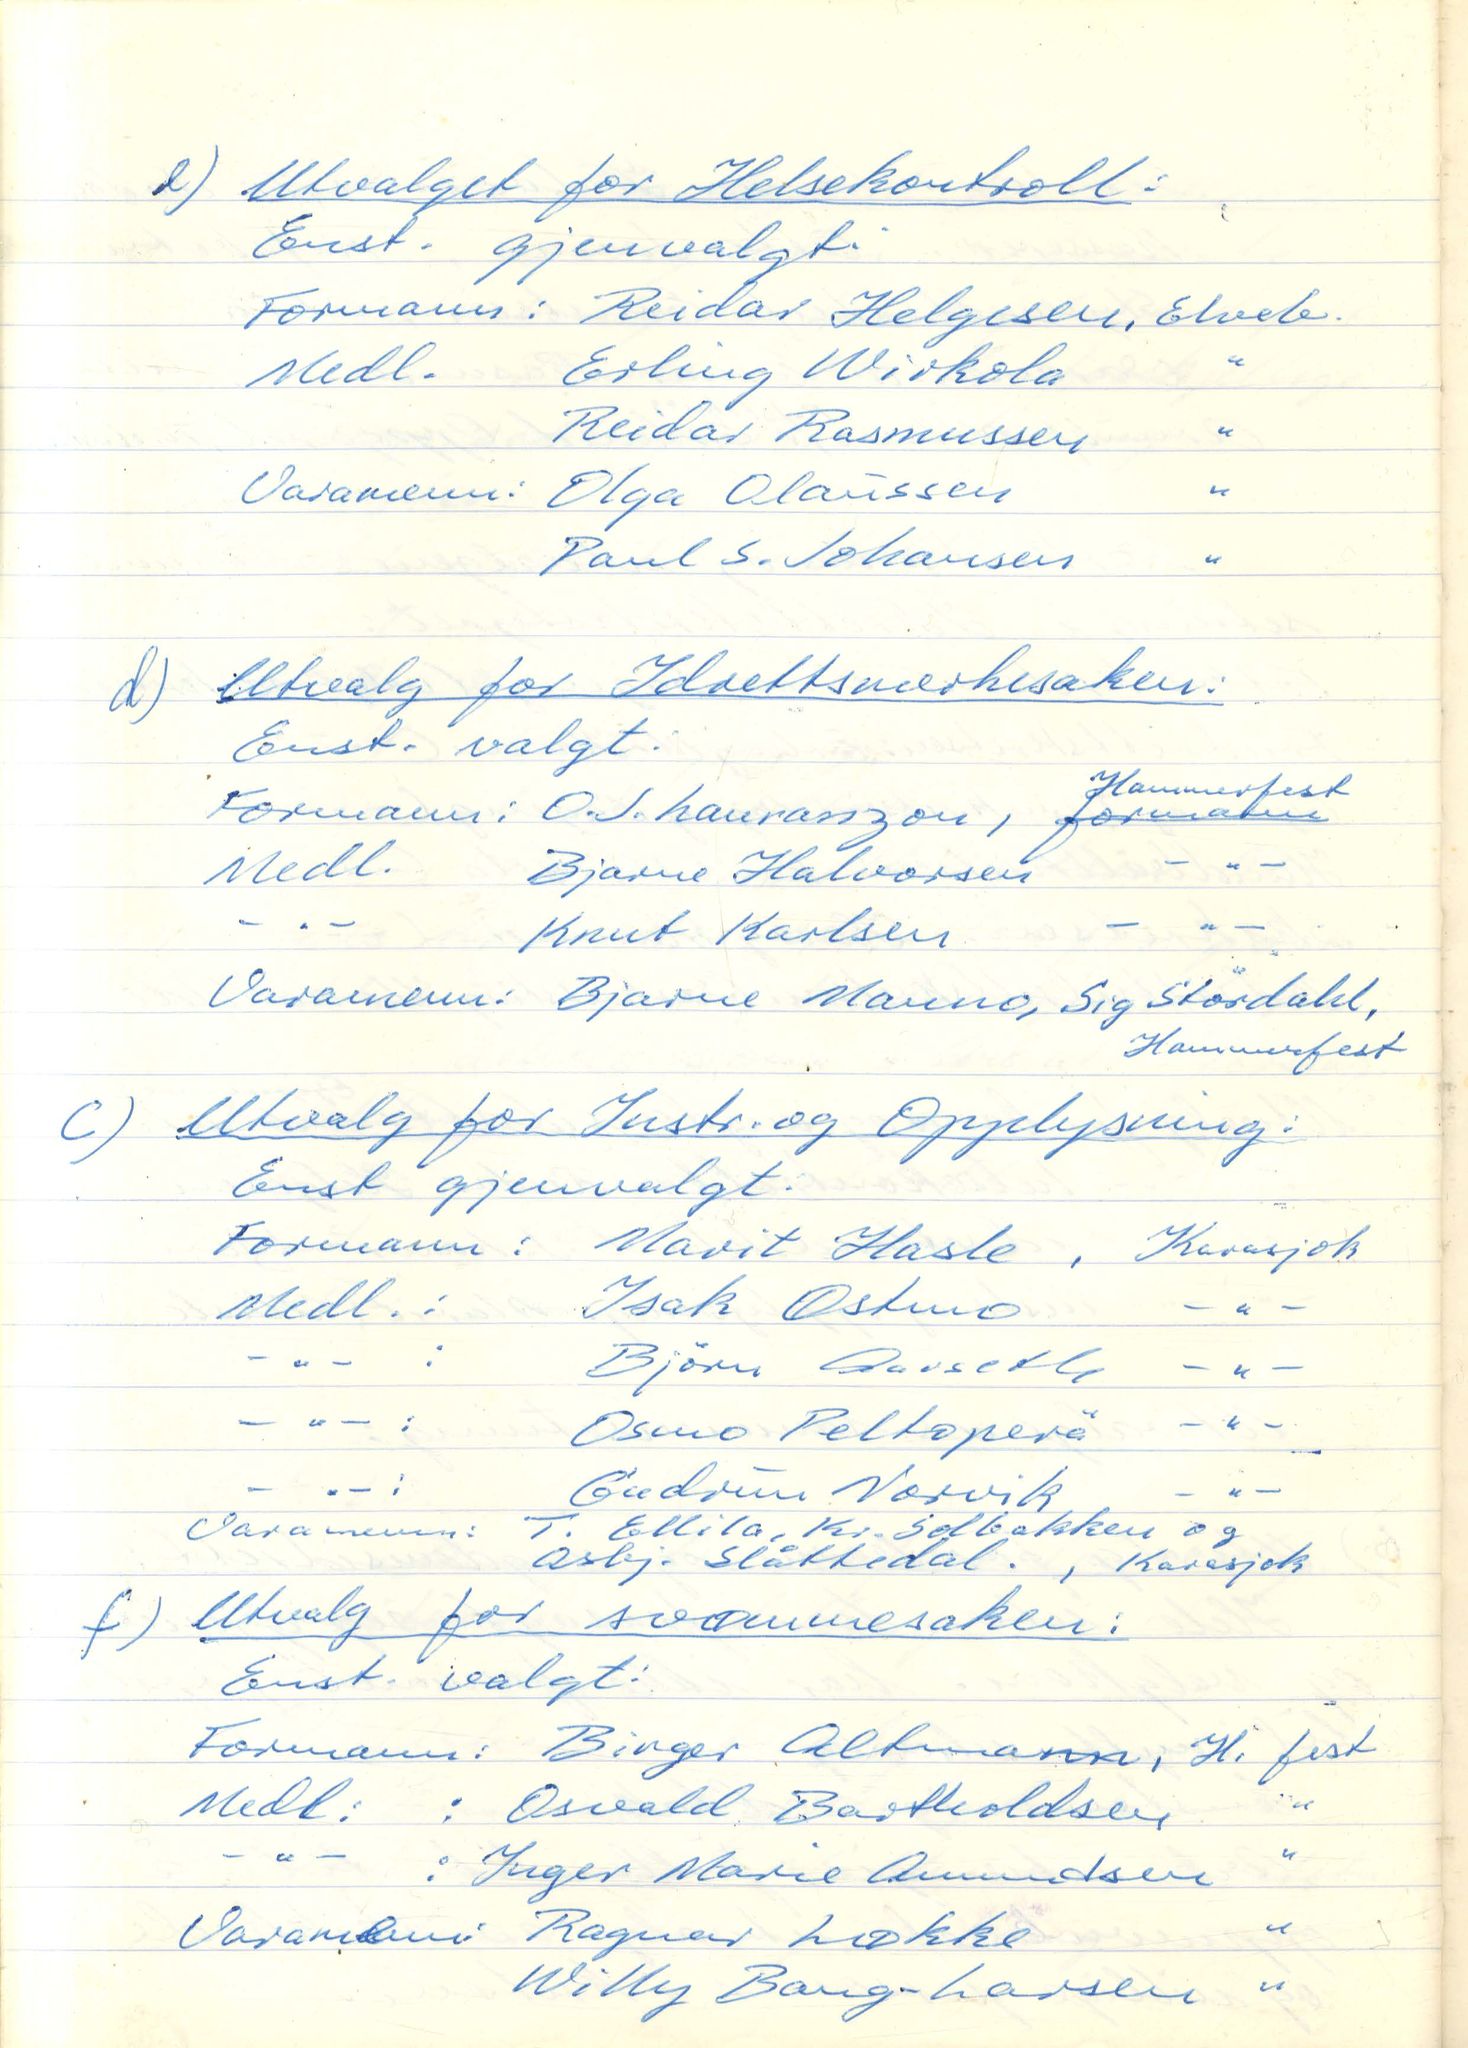 e) Utvalget for Helsekontroll:
Enst. gjenvalgt:
Formann: Reidar Helgesen, Elveb.
Medl. Erling Wirkola "
Reidar Rasmussen "
Varamenn: Olga Olaussen "
Paul S. Johansen "
d) Utvalg for Idrettsmerkesaken:
Enst. valgt:
Hammerfest
Formann: O.J. Lauranszon, formann
Medl. Bjarne Halvorsen - " -
- " - Knut Karlsen - " -
Varamenn: Bjarne Manno, Sig Stördahl,
Hammerfest
c) Utvalg for Instr. og Opplysning:
Enst gjenvalgt:
Formann: Marit Hasle, Karasjok
Medl.: Isak Østmo - " -
- " - : Björn Aarseth - " -
- " - : Osmo Peltoperä - " -
- " - : Gudrun Norvik - " -
Varamenn: T. Ellila, Kr. Solbakken og
Asbj. Slåttedal., Karasjok
f) Utvalg for svømmesaken:
Enst. valgt:
Formann: Birger Altmann, H. fest
Medl: : Osvald Bartholdsen "
- " - : Inger Marie Amundsen "
Varamenn: Ragnar Løkke "
Willy Bang-Larsen "